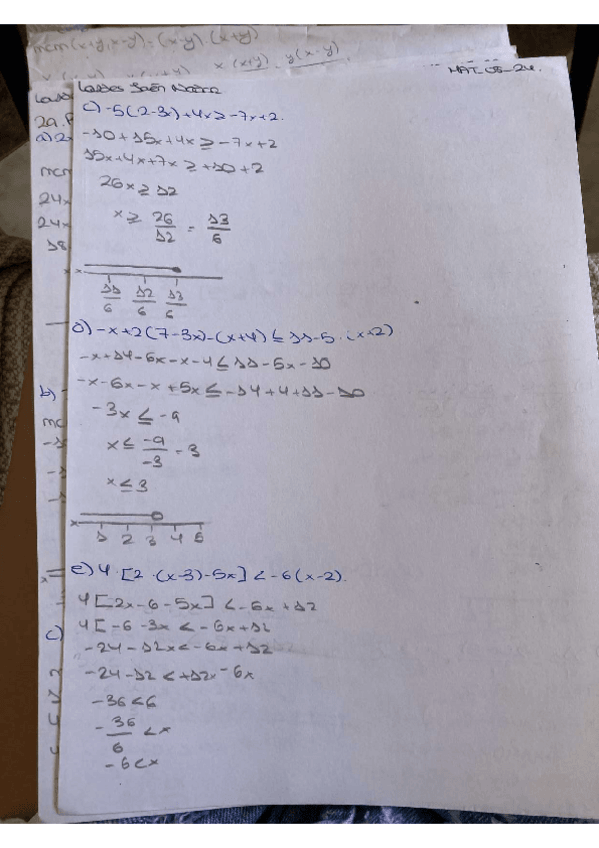 mcm(x+y,x-y)=(x-y).(x+y)
x (x+y) y(x-y)
MAT-05-24.
c) -5(2-3x)+4x≥-7x+2.
-10+15x+4x≥-7x+2
15x+4x+7x≥+10+2
26x≥12
x≥ 26/12 = 13/6
11/6 12/6 13/6
d) -x+2(7-3x)-(x+4)≤11-5·(x+2)
-x+14-6x-x-4≤11-5x-10
-x-6x-x+5x≤-14+4+11-10
-3x≤-9
x≤ -9/-3 = 3
x≤3
1 2 3 4 5
e) 4·[2·(x-3)-5x]<-6(x-2).
4[2x-6-5x]<-6x+12
4[-6-3x<-6x+12
-24-12x<-6x+12
-24-12<+12x-6x
-36<6
-36/6 <x
-6<x
2a.
a) 2
mcm
24x
24x
18
b)
c)